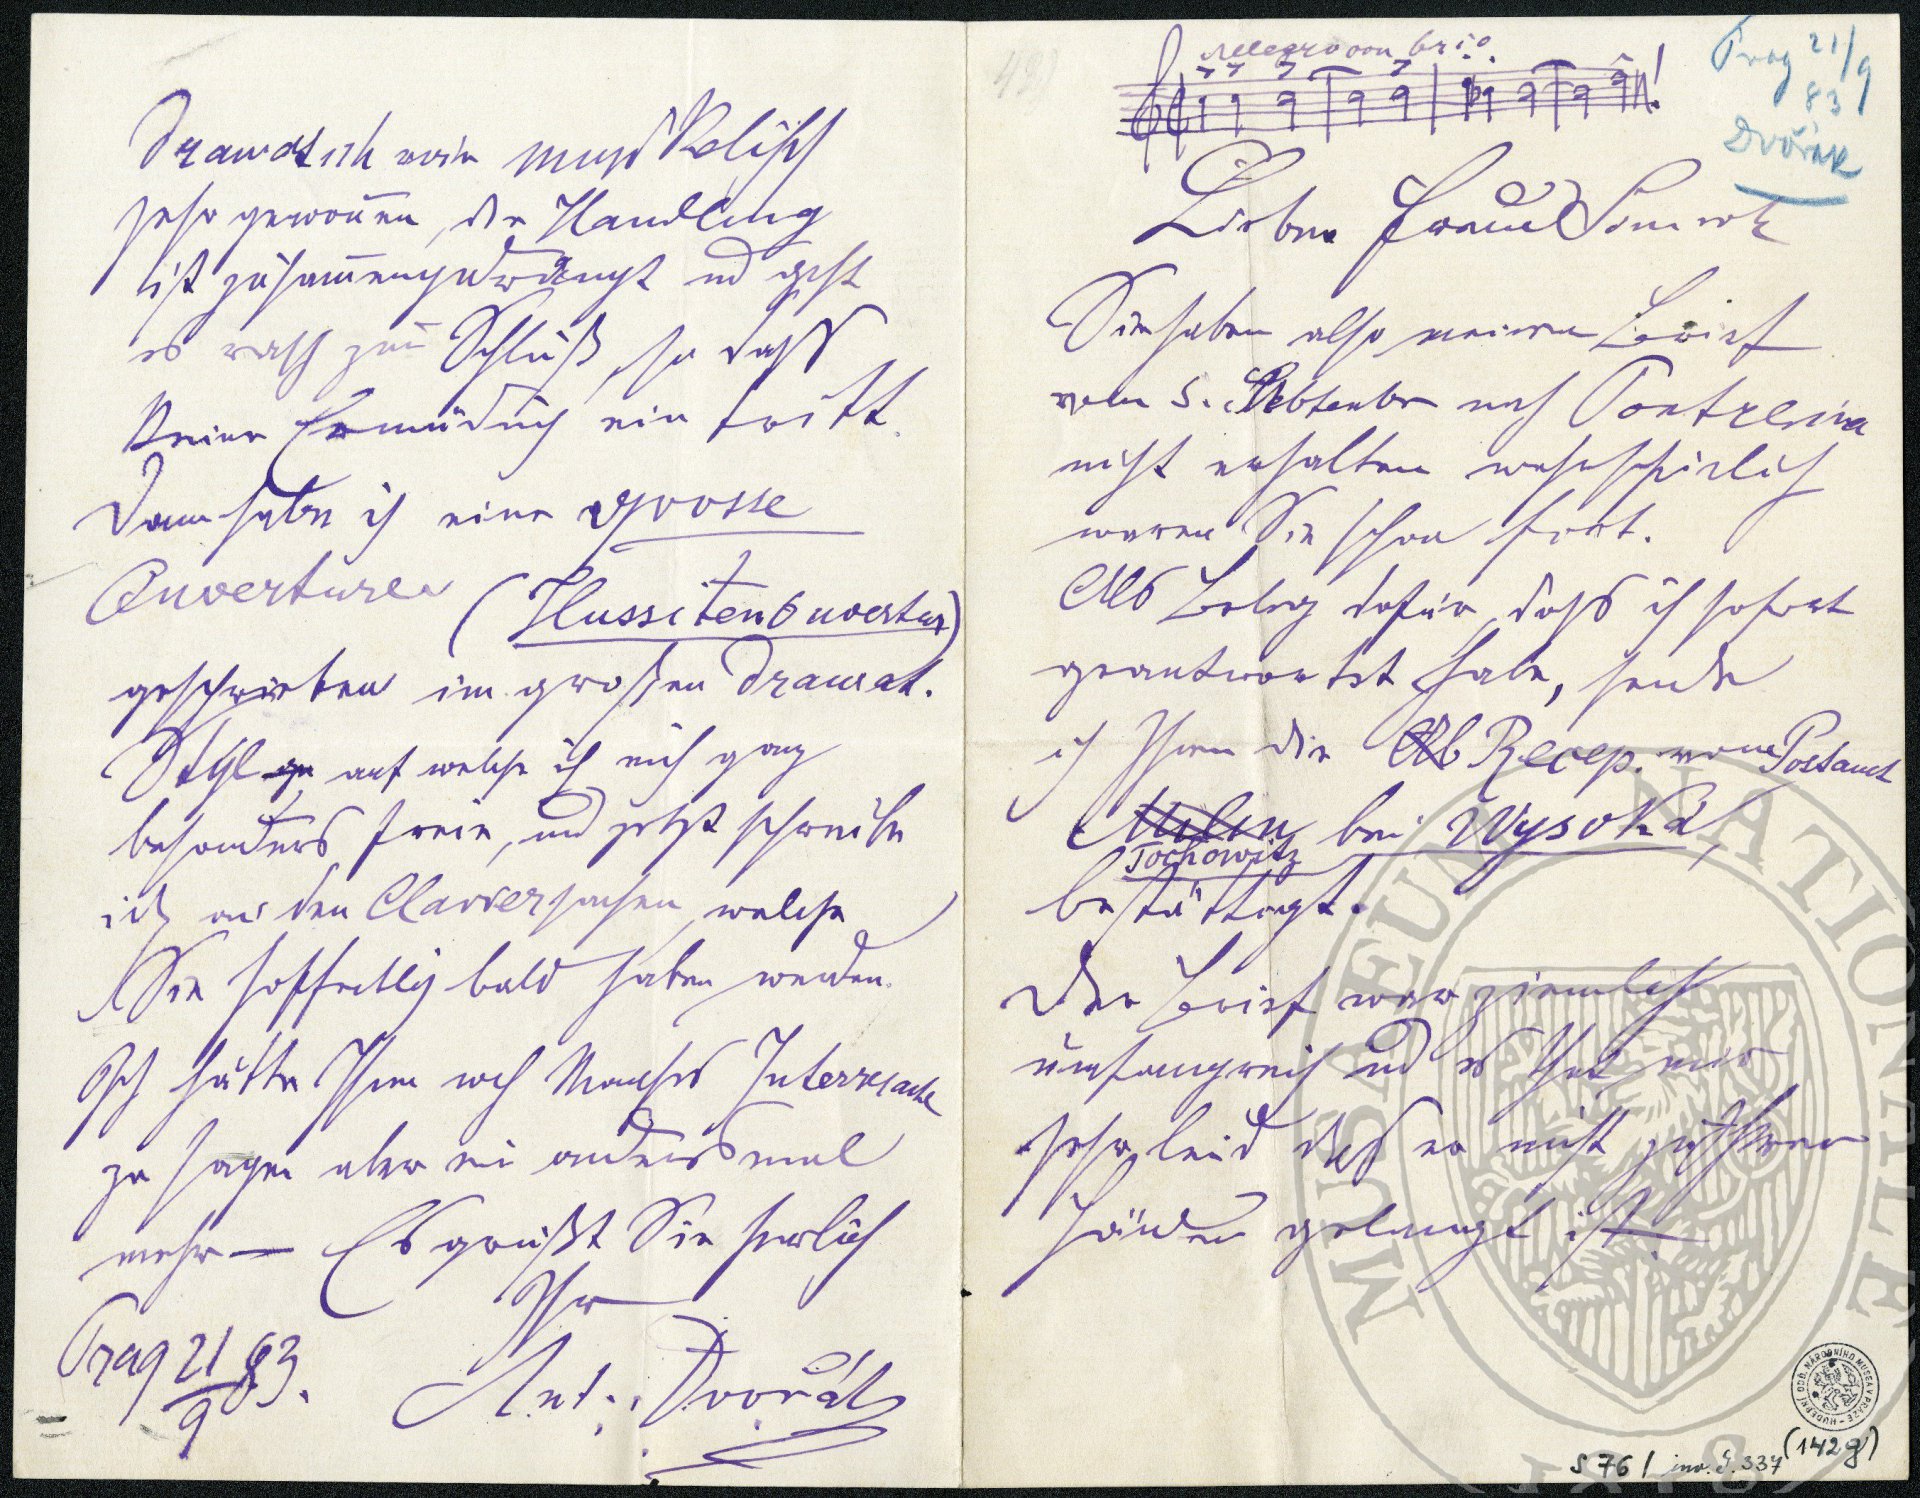 Allegro con brio.
Prag 21/9
83
Dvořák
Lieber Freund Simrock
Sie haben also meinen Brief
vom 5. September nach Pontresina
nicht erhalten wahrscheinlich
waren Sie schon fort.
Als Beleg dafür, daß ich sofort
geantwortet habe, sende
ich Ihnen die Recep. vom Postamt
Milin bei Wysoká,
Tochowitz
bestättigt.
Der Brief war ziemlich
umfangreich und es thut mir
sehr leid daß er nicht zu Ihren
Händen gelangt ist.
Dramatisch wie musikalisch
sehr gewonnen, die Handlung
ist zusammengedrängt und geht
es rasch zum Schluß, so daß
keine Ermüdung ein tritt.
Dann habe ich eine grosse
Ouverture
(Hussitenouvertur)
geschrieben im großen Dramat.
Styl auf welche ich mich ganz
besonders freue, und jetzt schreibe
ich an den Claviersachen, welche
Sie hoffentlich bald haben werden.
Ich hätte Ihnen noch Manches Interessante
zu sagen aber ein anderes mal
mehr — Es grüßt Sie herzlich
Ihr
Prag 21/9 83.
Ant. Dvořák
MUSAEUM NATIONALE
HUDEBNÍ ODD. NÁRODNÍHO MUSEA V PRAZE
S 76 / inv. č. 337 (142g)